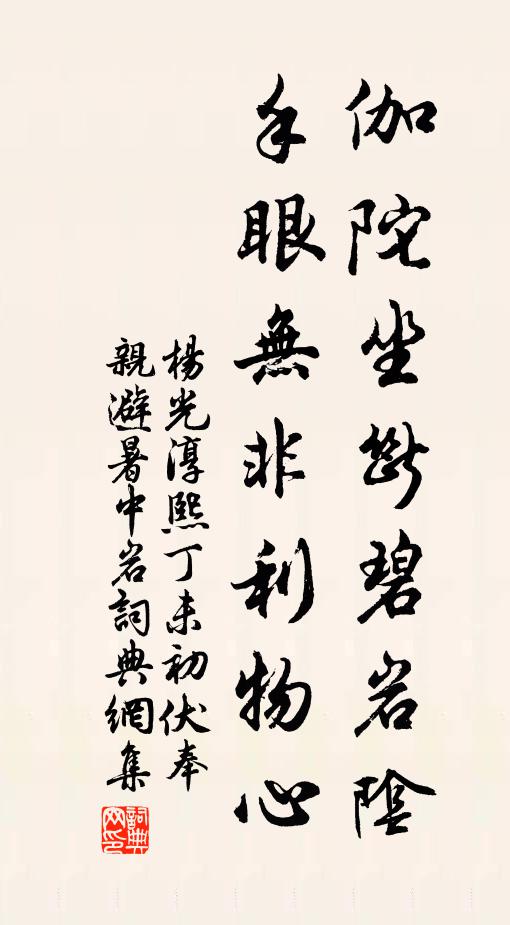 伽陀坐斷碧岩陰
手眼無非利物心
楊光淳熙丁未初伏奉
親避暑中岩詞典網集
詞典網印